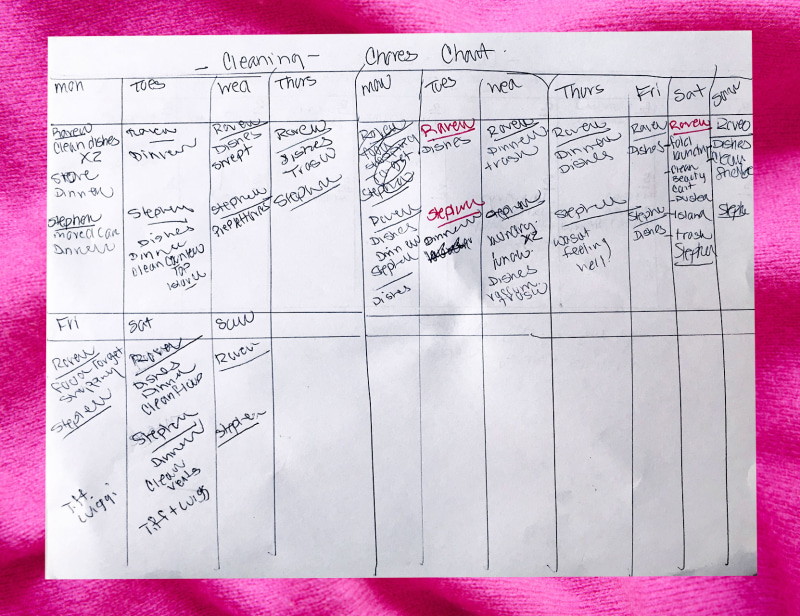 - Cleaning - Chores Chart.
mon Tues wed Thurs mon Tues wed Thurs Fri Sat sun
Raven
Clean dishes
x2
Stove
Dinner
Stephen
moved Car
Dinner
Raven
Dinner
Stephen
Dishes
Dinner
Clean
Top
Raven
Dishes
swept
Stephen
Raven
Dishes
Trash
Stephen
Raven
Dishes
Dinner
Stephen
Dishes
Raven
Dishes
Stephen
Dinner
Raven
Dinner
trash
Stephen
laundry
x2
Dishes
Raven
Dinner
Dishes
Stephen
wasnt
feeling
well
Raven
Dishes
Stephen
Dishes
Raven
- fold
laundry
- Clean
Beauty
Cart
- Duster
- Island
- trash
Stephen
Raven
Dishes
Clean
Stephe
Fri Sat sun
Raven
Target
Shopping
Stephen
Tifi
Luiggi
Raven
Dishes
Dinner
Clean
Stephen
Dinner
Clean
Vents
Tifi + Luigg
Raven
Stephen